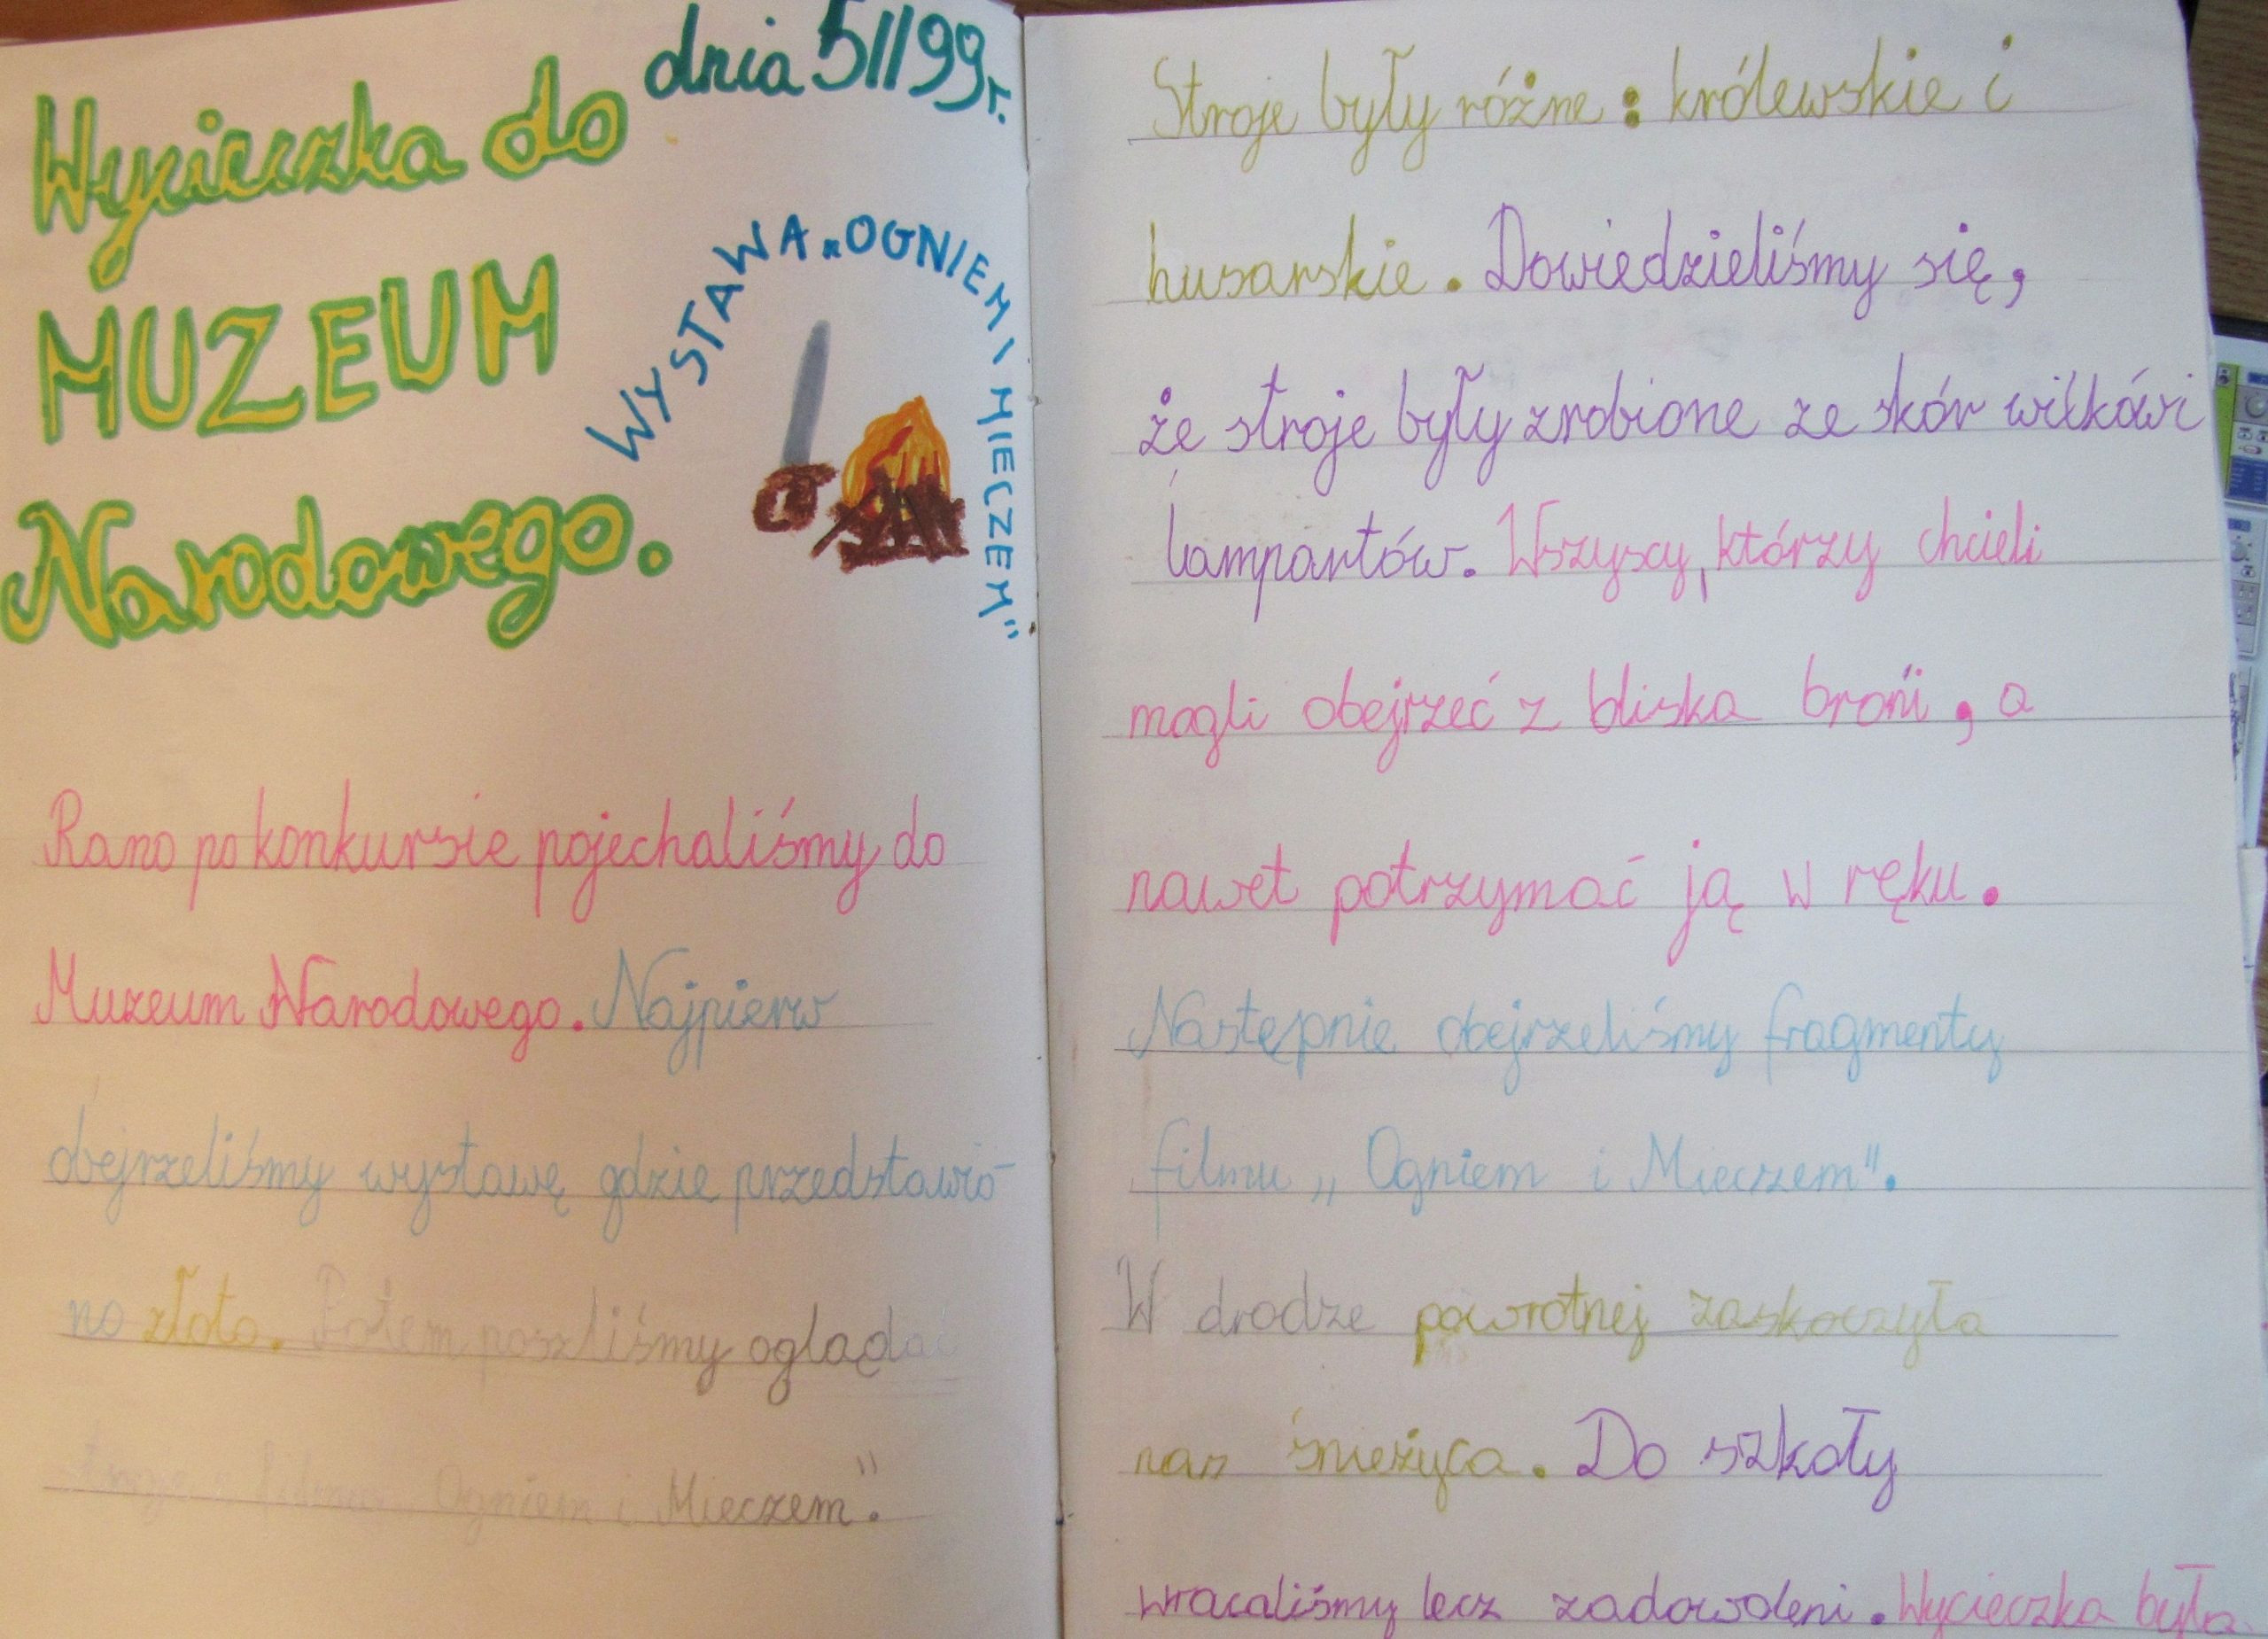 dnia 5II99r.
Wycieczka do
MUZEUM
Narodowego.
WYSTAWA „OGNIEM I MIECZEM"
Rano po konkursie pojechaliśmy do
Muzeum Narodowego. Najpierw
obejrzeliśmy wystawę gdzie przedstawio-
no złoto. Potem poszliśmy oglądać
stroje z filmu „Ogniem i Mieczem".
Stroje były różne: królewskie i
husarskie. Dowiedzieliśmy się,
że stroje były zrobione ze skór wilków i
lampartów. Wszyscy, którzy chcieli
mogli obejrzeć z bliska broń, a
nawet potrzymać ją w ręku.
Następnie obejrzeliśmy fragmenty
filmu „Ogniem i Mieczem".
W drodze powrotnej zaskoczyła
nas śnieżyca. Do szkoły
wracaliśmy lecz zadowoleni. Wycieczka była